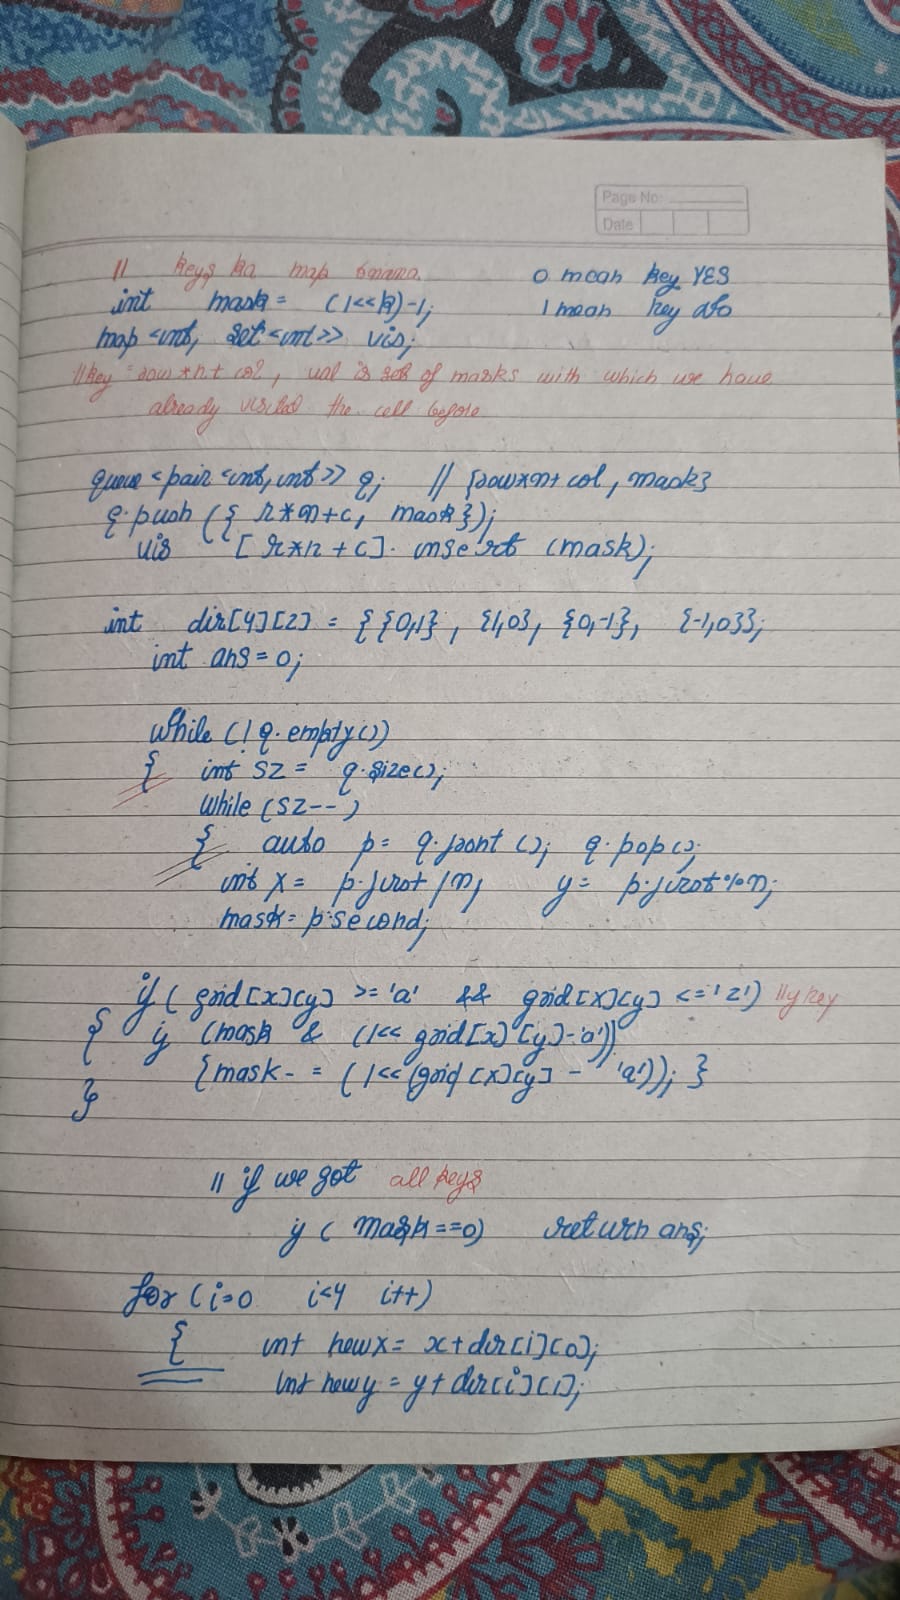 Page No:
Date
// keys ka map banana. 0 mean key YES
int mask = (1<<k)-1; 1 mean key No
map <int, set <int>> vis;
//key = row*n + col, val is set of masks with which we have
already visited the cell before
queue <pair <int, int>> q; // {row*n+col, mask}
q.push ({r*n+c, mask});
vis [r*n+c].insert (mask);
int dir[4][2] = {{0,1}, {1,0}, {0,-1}, {-1,0}};
int ans=0;
while (!q.empty())
{ int sz = q.size();
while (sz--)
{ auto p= q.front (); q.pop();
int x= p.first/n, y= p.first%n;
mask= p.second;
if (grid[x][y] >= 'a' && grid[x][y] <= 'z') //if key
{ if (mask & (1<< grid[x][y]-'a'))
{mask- = (1<<(grid[x][y] - 'a')); }
}
// if we got all keys
if (mask==0) return ans;
for (i=0 i<4 i++)
{ int newx= x+dir[i][0];
int newy = y+ dir[i][1];